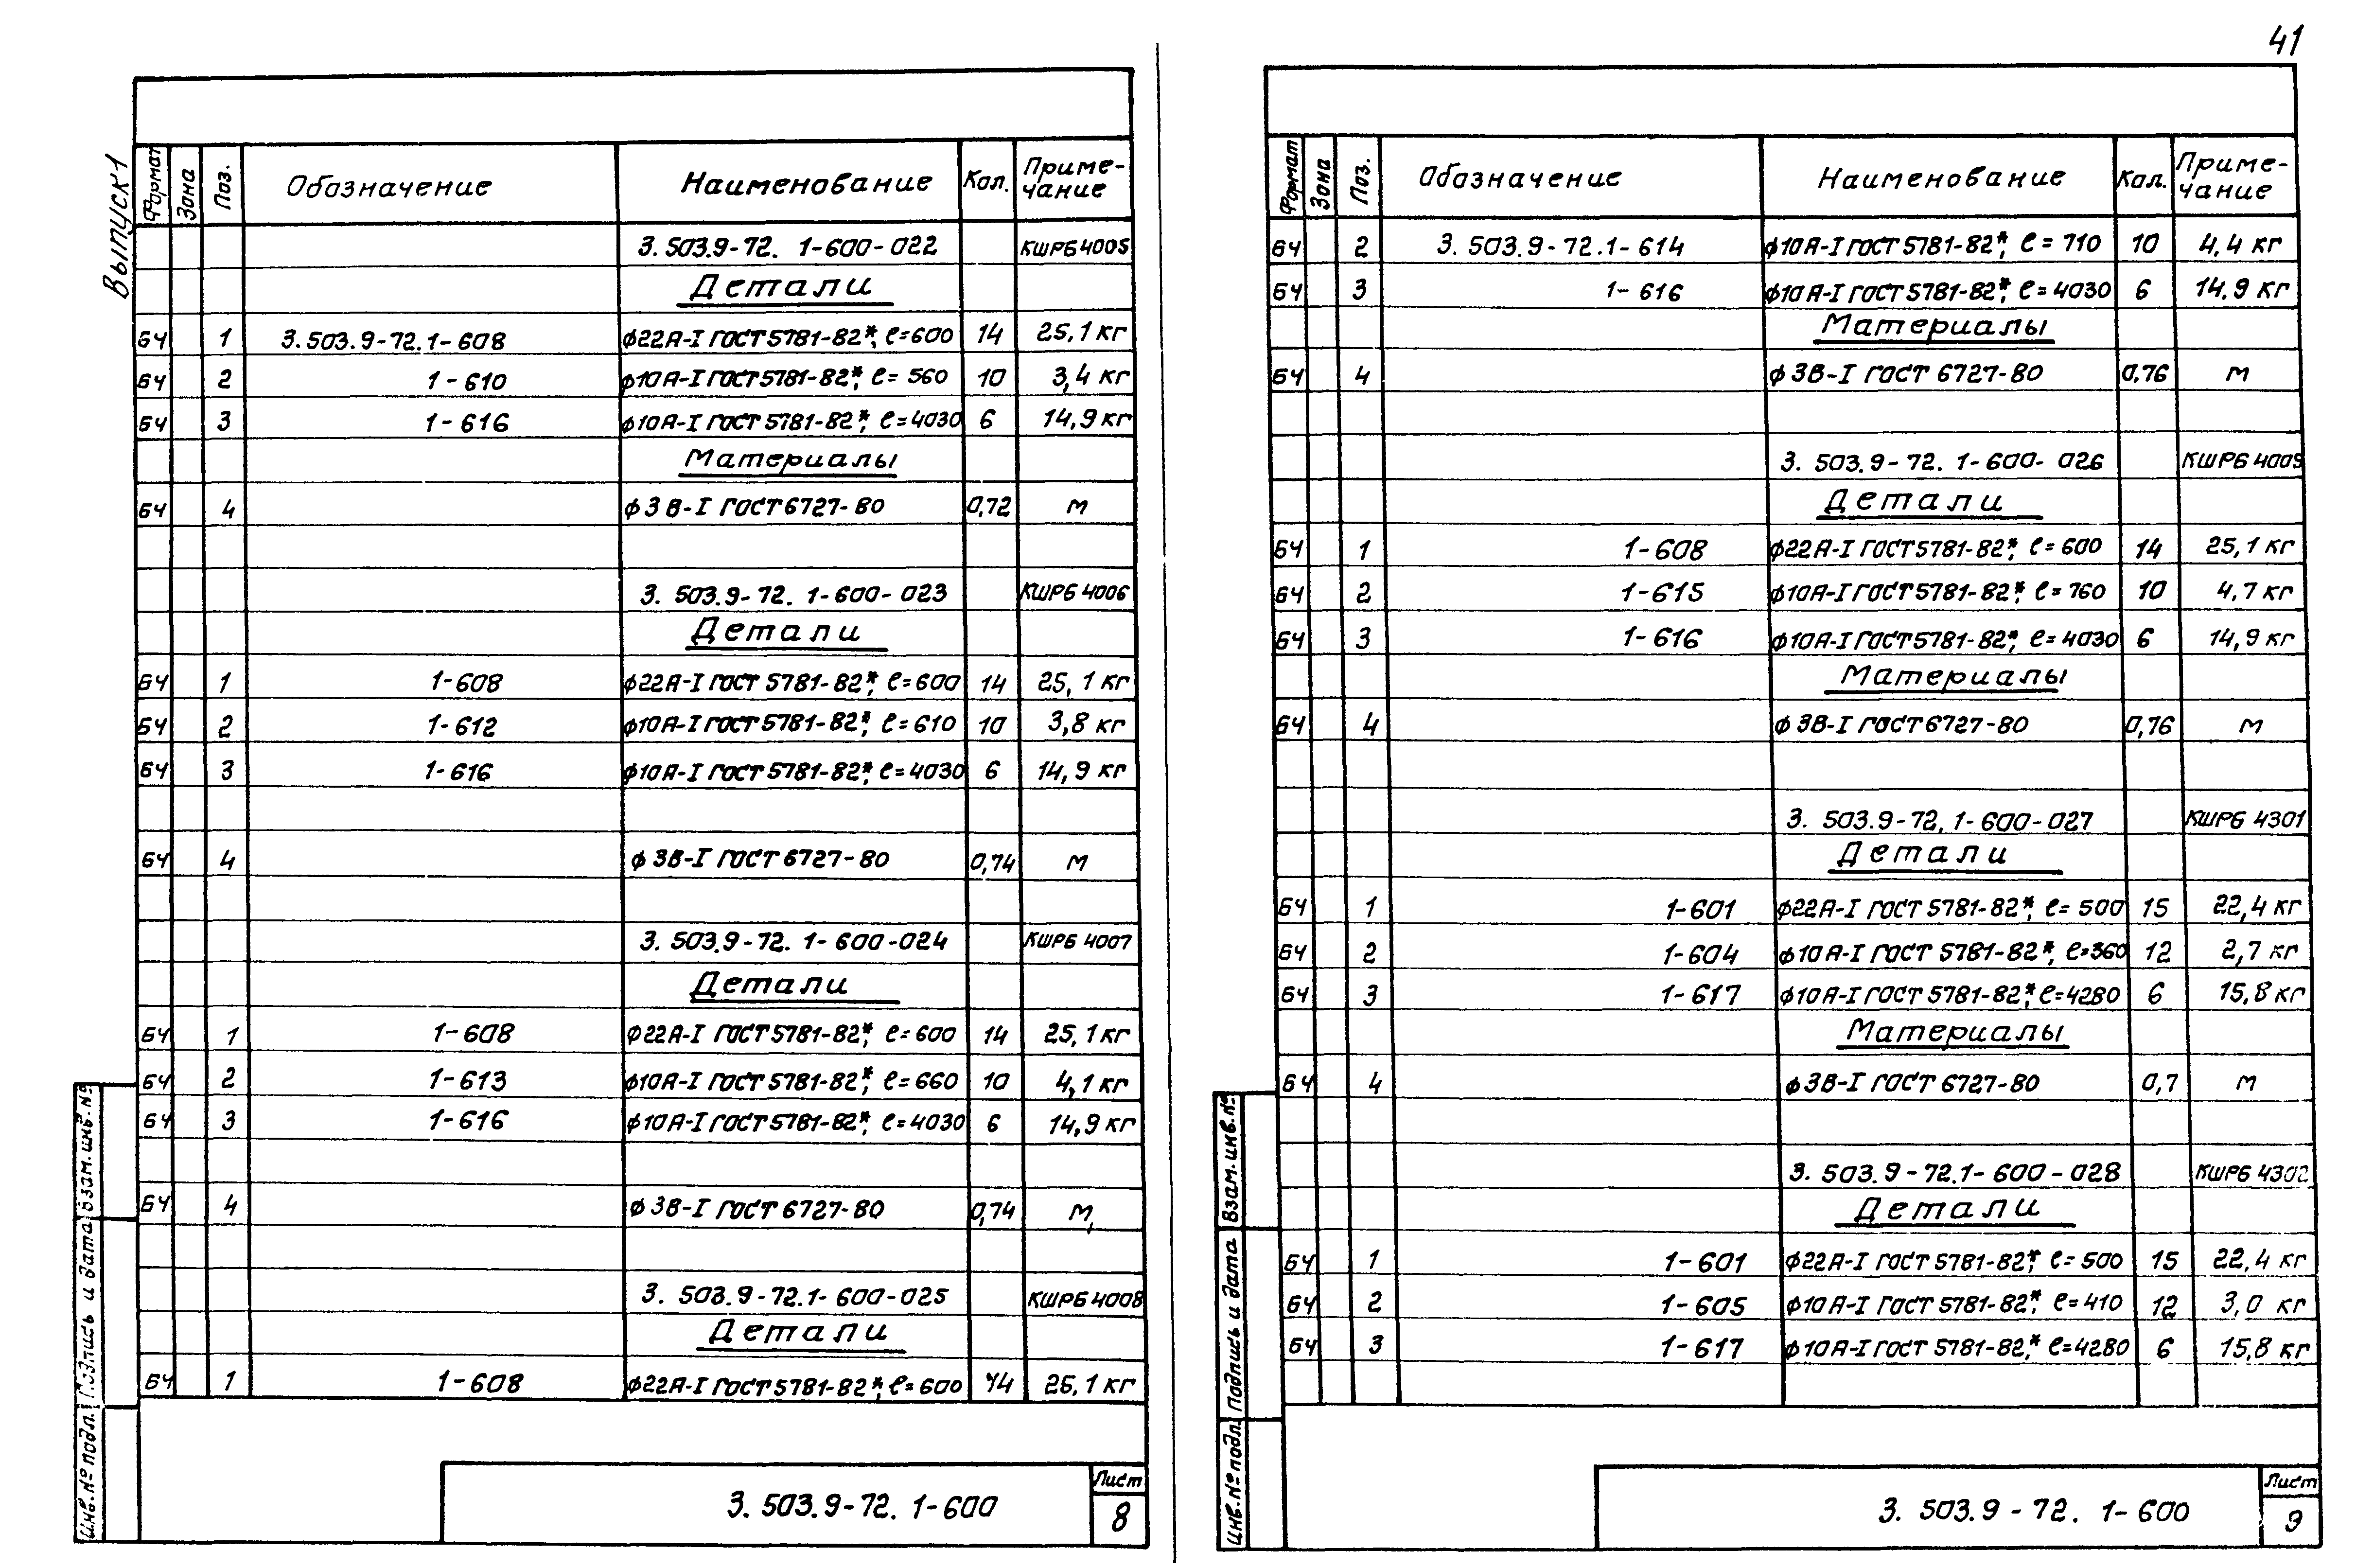 41
Выпуск 1
Формат Зона Поз. Обозначение Наименование Кол. Приме-чание
3.503.9-72. 1-600-022 КШРБ4005
Детали
БЧ 1 3.503.9-72.1-608 ф22А-I ГОСТ5781-82*, ℓ=600 14 25,1 кг
БЧ 2 1-610 ф10А-I ГОСТ5781-82*, ℓ=560 10 3,4 кг
БЧ 3 1-616 ф10А-I ГОСТ5781-82*, ℓ=4030 6 14,9 кг
Материалы
БЧ 4 ф3В-I ГОСТ6727-80 0,72 м
3.503.9-72. 1-600-023 КШРБ4006
Детали
БЧ 1 1-608 ф22А-I ГОСТ5781-82*, ℓ=600 14 25,1 кг
БЧ 2 1-612 ф10А-I ГОСТ5781-82*, ℓ=610 10 3,8 кг
БЧ 3 1-616 ф10А-I ГОСТ5781-82*, ℓ=4030 6 14,9 кг
БЧ 4 ф3В-I ГОСТ6727-80 0,74 м
3.503.9-72. 1-600-024 КШРБ4007
Детали
БЧ 1 1-608 ф22А-I ГОСТ5781-82*, ℓ=600 14 25,1 кг
БЧ 2 1-613 ф10А-I ГОСТ5781-82*, ℓ=660 10 4,1 кг
БЧ 3 1-616 ф10А-I ГОСТ5781-82*, ℓ=4030 6 14,9 кг
БЧ 4 ф3В-I ГОСТ6727-80 0,74 м
3.503.9-72.1-600-025 КШРБ4008
Детали
БЧ 1 1-608 ф22А-I ГОСТ5781-82*, ℓ=600 14 25,1 кг
Инв.№ подл. Подпись и дата Взам.инв.№
3.503.9-72. 1-600
Лист
8
Формат Зона Поз. Обозначение Наименование Кол. Приме-чание
БЧ 2 3.503.9-72.1-614 ф10А-I ГОСТ5781-82*, ℓ=710 10 4,4 кг
БЧ 3 1-616 ф10А-I ГОСТ5781-82*, ℓ=4030 6 14,9 кг
Материалы
БЧ 4 ф3В-I ГОСТ 6727-80 0,76 м
3.503.9-72. 1-600-026 КШРБ4009
Детали
БЧ 1 1-608 ф22А-I ГОСТ5781-82*, ℓ=600 14 25,1 кг
БЧ 2 1-615 ф10А-I ГОСТ5781-82*, ℓ=760 10 4,7 кг
БЧ 3 1-616 ф10А-I ГОСТ5781-82*, ℓ=4030 6 14,9 кг
Материалы
БЧ 4 ф3В-I ГОСТ6727-80 0,76 м
3.503.9-72. 1-600-027 КШРБ4301
Детали
БЧ 1 1-601 ф22А-I ГОСТ5781-82*, ℓ=500 15 22,4 кг
БЧ 2 1-604 ф10А-I ГОСТ5781-82*, ℓ=360 12 2,7 кг
БЧ 3 1-617 ф10А-I ГОСТ5781-82*, ℓ=4280 6 15,8 кг
Материалы
БЧ 4 ф3В-I ГОСТ6727-80 0,7 м
3.503.9-72.1-600-028 КШРБ4302
Детали
БЧ 1 1-601 ф22А-I ГОСТ5781-82*, ℓ=500 15 22,4 кг
БЧ 2 1-605 ф10А-I ГОСТ5781-82*, ℓ=410 12 3,0 кг
БЧ 3 1-617 ф10А-I ГОСТ5781-82*, ℓ=4280 6 15,8 кг
Инв.№ подл. Подпись и дата Взам.инв.№
3.503.9-72. 1-600
Лист
9